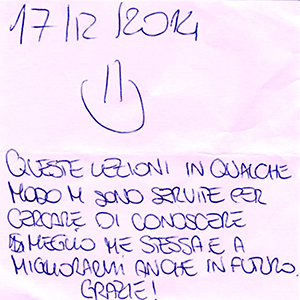 17/12/2014
QUESTE LEZIONI IN QUALCHE
MODO MI SONO SERVITE PER
CERCARE DI CONOSCERE
MEGLIO ME STESSA E A
MIGLIORARMI ANCHE IN FUTURO.
GRAZIE!